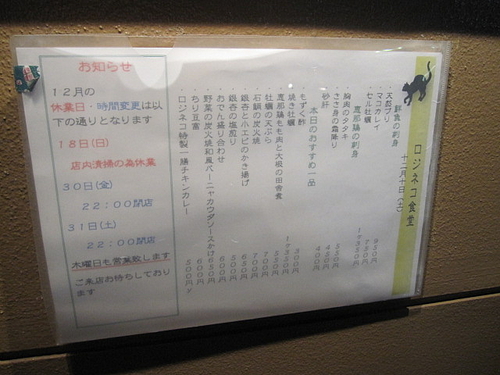 ロジネコ食堂 十二月十日(土)
鮮魚の刺身
・天然ブリ 950円
・マコガレイ 750円
・セル牡蠣
恵那鶏の刺身
・胸肉のタタキ 550円
・ささ身の霜降り 450円
・砂肝 400円
本日のおすすめ一品
・もずく酢 300円
・焼き牡蠣
・恵那鶏もも肉と大根の田舎煮 550円
・牡蠣の天ぷら 700円
・石鯛の炭火焼 700円
・銀杏と小エビのかき揚げ 650円
・銀杏の塩煎り 500円
・おでん盛り合わせ 600円
・野菜の炭火焼和風バーニャカウダソースかけ 650円
・ちり豆富 600円
・ロジネコ特製 豚チキンカレー 500円
お知らせ
12月の
休業日・時間変更は以
下の通りとなります
18日(日)
店内清掃の為休業
30日(金)
22:00閉店
31日(土)
22:00閉店
木曜日も営業致します
ご来店お待ちしており
ます